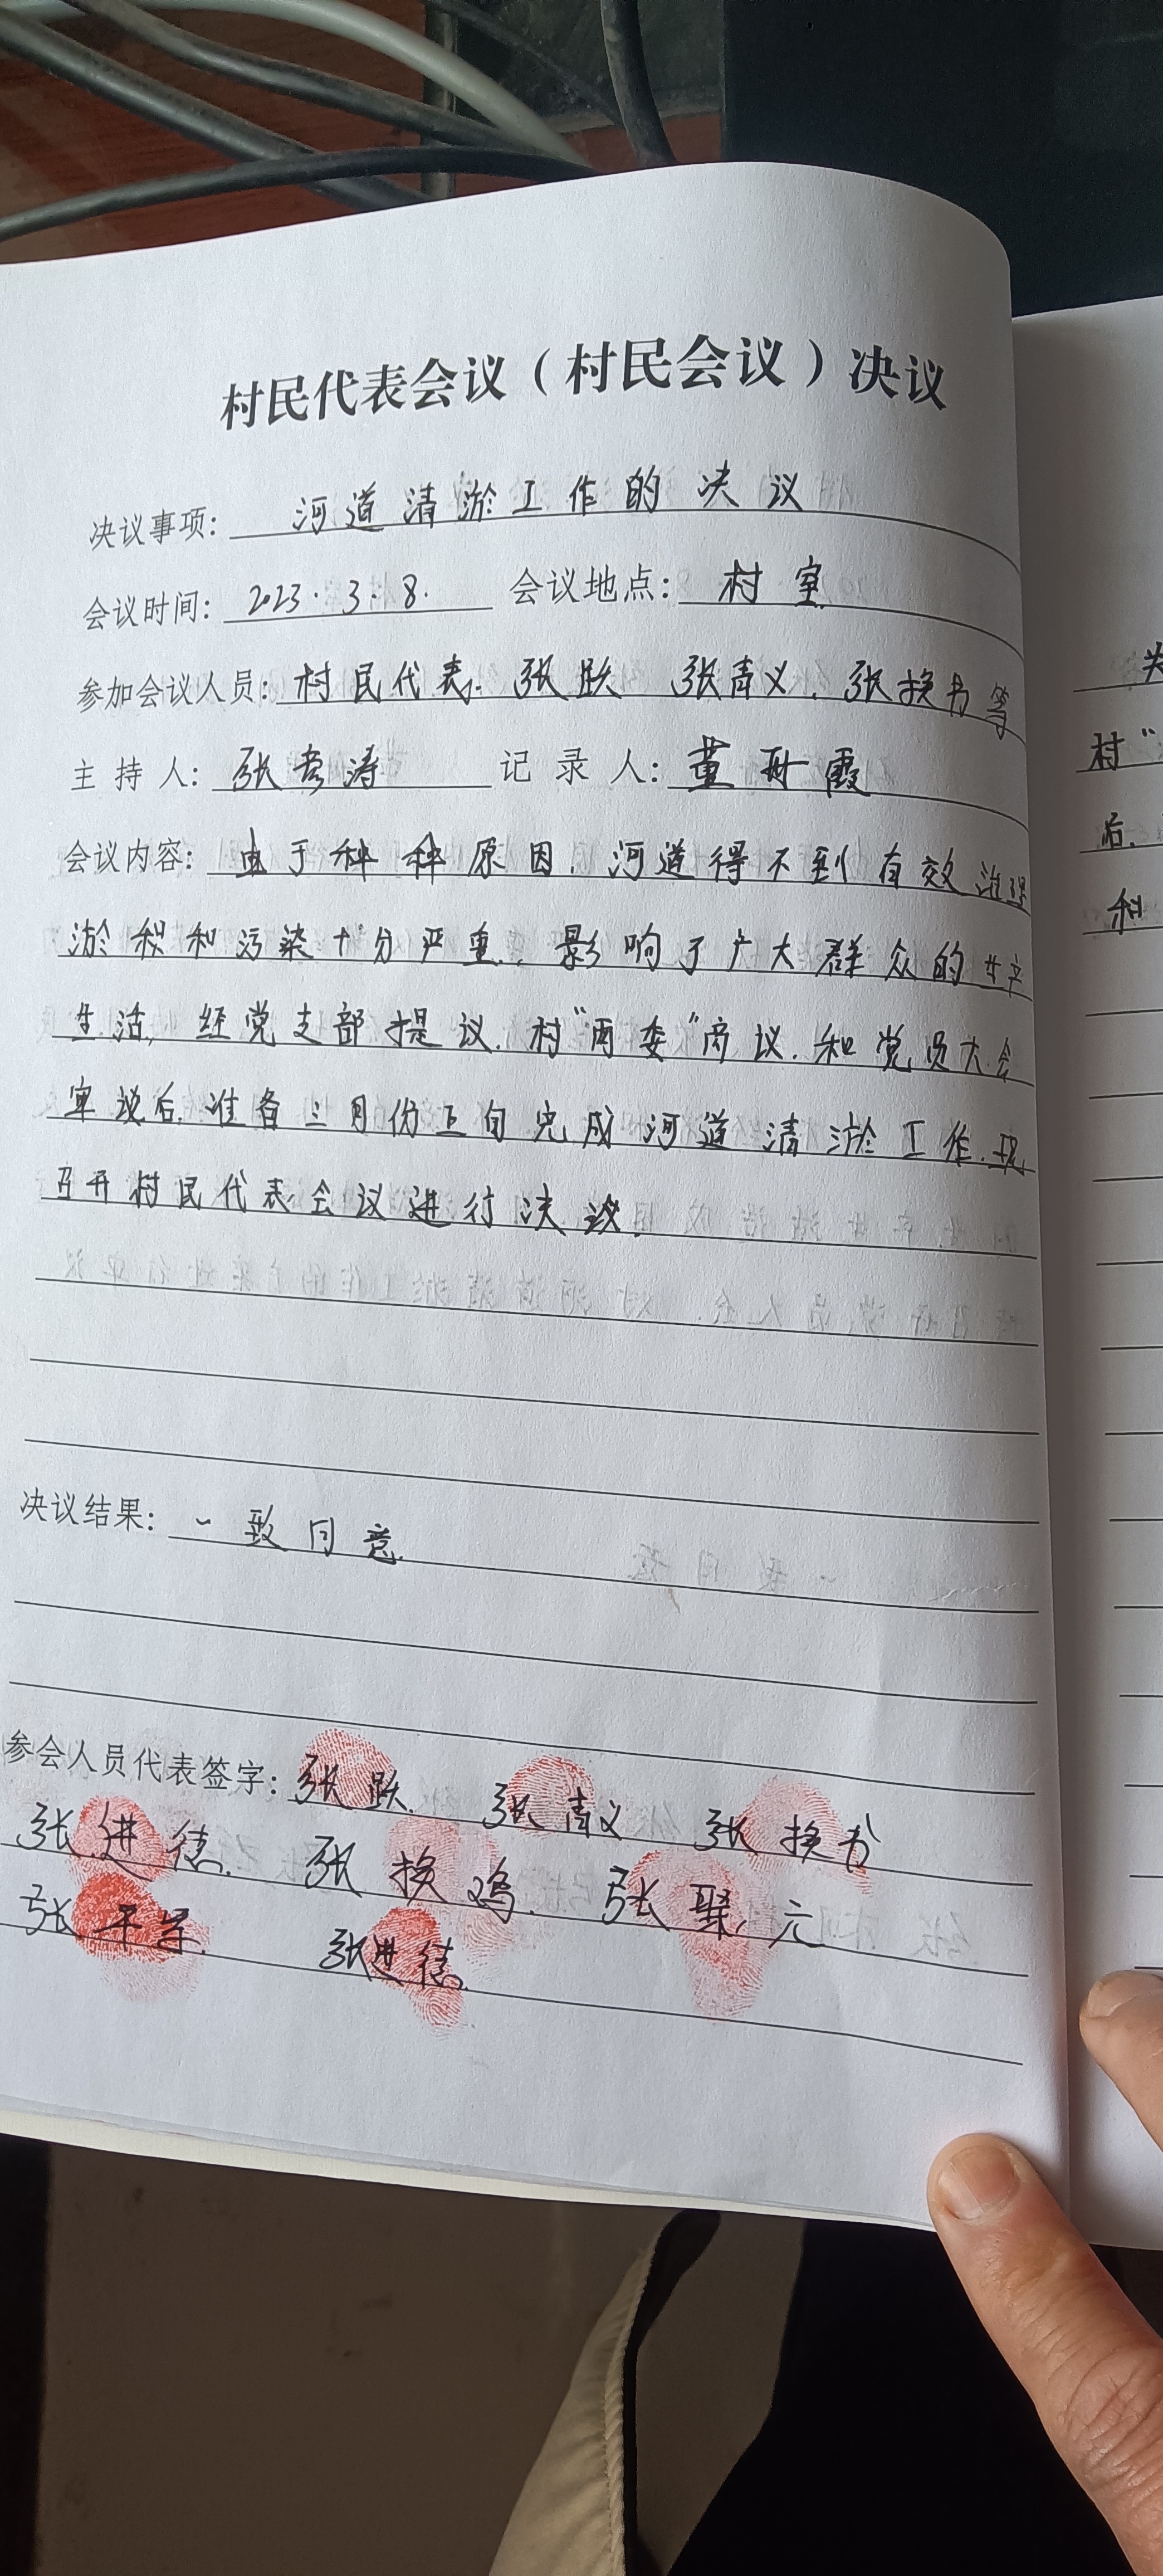 村民代表会议（村民会议）决议
决议事项: 河道清淤工作的决议
会议时间: 2023.3.8. 会议地点: 村室
参加会议人员: 村民代表. 张跃 张青义. 张换书等
主持人: 张秀涛 记录人: 董丹霞
会议内容: 由于种种原因, 河道得不到有效治理
淤积和污染十分严重, 影响了广大群众的生产
生活, 经党支部提议. 村“两委”商议. 和党员大会
审议后. 准备三月份上旬完成河道清淤工作. 现
召开村民代表会议进行决议.
决议结果: 一致同意.
参会人员代表签字: 张跃. 张青义 张换书
张进德. 张换鸡. 张聚元
张 张进德.
村“
后.
和